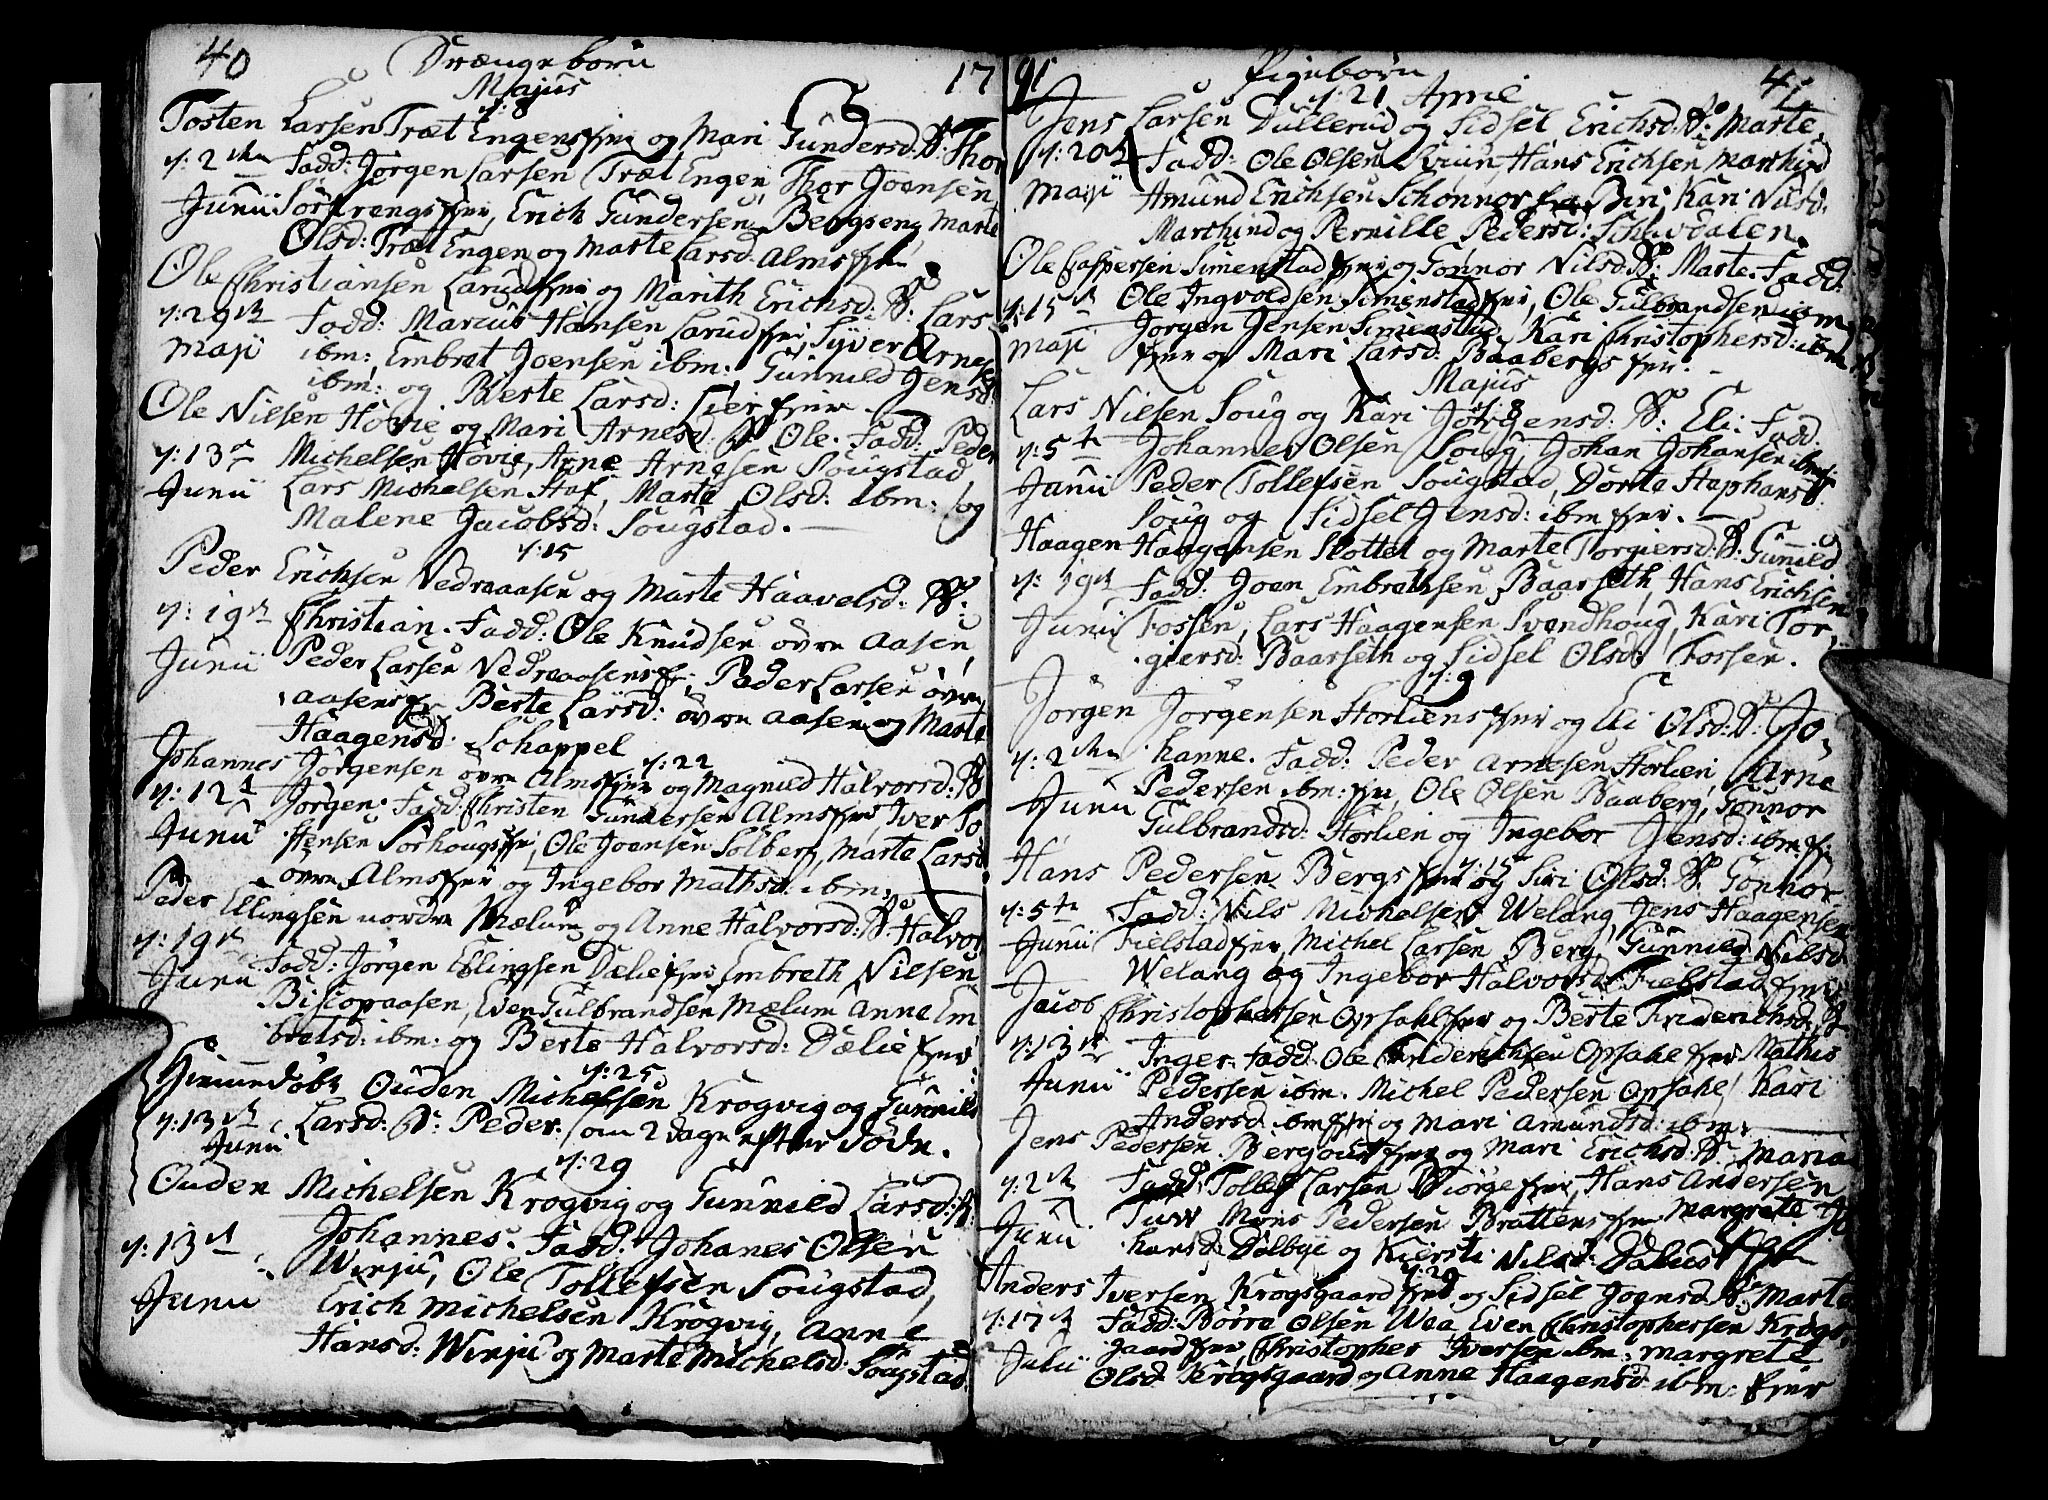 40 Drængebörn 17
Majus
d: 8
Tosten Larsen Træt Engens ejer og Mari Gundersd: B: Thor
d: 2den Fadd: Jörgen Larsen Træt Engen, Thor Joensen
Junii Erich Gundersen Bergseng, Marte
Olsd: Træt Engen og Marte Larsd: Alms
Ole Christiansen Larud og Marith Erichsd: B: Lars
d: 29de Fadd: Marcus Hansen Larud, Syver Arnes
Maji ibm: Embret Joensen ibm: Gunnild Jensd:
ibm: og Berte Larsd: Lier
Ole Nilsen Hövie og Mari Arnesd: B: Ole. Fadd: Peder
d: 13de Michelsen Hövie, Arne Arnesen Sougstad
Junii Lars Michelsen Haf, Marte Olsd: ibm: og
Malene Jacobsd: Sougstad.
d: 15
Peder Erichsen Vedraaasen og Marte Haavelsd: B:
d: 19de Christian. Fadd: Ole Knudsen övre Aasen,
Junii Peder Larsen Vedraaasens, Peder Larsen övre
aasens Berte Larsd: övre aasen og Marte
Haagensd: Schappel
d: 22
Johannes Jörgensen övre Alms og Magnild Halvorsd: B
d: 12te Jörgen. Fadd: Christen Gundersen Alms, Iver To
Junii stensen Sorhougs, Ole Joensen Solberg, Marte Larsd:
övre Alms og Ingebor Mathisd: ibm:
Peder Ellingsen nordre Mælum og Anne Halvorsd: B Halvor
d: 19de Fadd: Jörgen Ellingsen Dælie Embreth Nilsen
Junii Biscopaasen, Even Gulbrandsen Mælum Anne Em
bretsd: ibm: og Berte Halvorsd: Dælie
d: 25
Hiemmedöbt Ouden Michelsen Krogvig og Gunnild
d: 13de Larsd: B: Peder som 2 dage efter döde.
Junii
d: 29
Ouden Michelsen Krogvig og Gunnild Larsd: B:
d: 13de Johannes. Fadd: Johanes Olsen
Winju, Ole Tollefsen Sougstad,
Junii Erich Michelsen Krogvig, Anne
Hansd: Winju og Marte Michelsd: Sougstad
91 Pigebörn 41
d: 21 April
Jens Larsen Dullerud og Sidsel Erichsd: B: Marte
d: 20de Fadd: Ole Olsen Hans Erichsen Marthind
Maji Amund Erichsen Schönnor fra Biri, Kari Nilsd:
Marthind og Pernille Pedersd:
Ole Caspersen Simenstad og Gonnor Nilsd: B: Marte. Fadd:
d: 15de Ole Ingvoldsen Simenstad, Ole Gulbrandsen ibm
Maji Jörgen Jensen Simenstad, Kari Christophersd: ibm
og Mari Larsd: Baabergs
Majus
d: 8
Lars Nilsen Soug og Kari Jörgensd: B: Eli. Fadd:
d: 5te Johannes Olsen Soug, Johan Johansen
Junii Peder Tollefsen Sougstad, Dorte Staphansd
Soug og Sidsel Jensd: ibm
Haagen Haagensen Slottet og Marte Torgiersd: B: Gunnild
d: 19de Fadd: Joen Embretsen Baarseth, Hans Erichsen
Junii Fossen, Lars Haagensen Svendhoug, Kari Tor
giersd: Baarseth og Sidsel Olsd: Fossen.
d: 9
Jörgen Jörgensen Horliens og Eli Olsd: B: Jo
d: 2den hanne. Fadd: Peder Arnesen Horlien, Arne
Junii Pedersen ibm: Ole Olsen Baaberg, Gonnor
Gulbrandsd: Horlien og Ingebor Jensd: ibm:
d: 15
Hans Pedersen Bergs og Siri Olsd: B: Gonnor
d: 5te Fadd: Nils Michelsen Welang, Jens Haagensen
Junii Fielstad, Michel Larsen Berg, Gunnild Nilsd:
Welang og Ingebor Halvorsd: Fielstad
Jacob Christophersen Opsahl og Berte Friderichsd: B:
d: 13de Inger. Fadd: Ole Friderichsen Opsahl Mathis
Junii Pedersen ibm. Michel Pedersen Opsahl Kari
Andersd: ibm og Mari Amundsd: ibm:
Jens Pedersen og Mari Erichsd: B: Maria
d: 2de Fadd: Tollef Larsen Hans Andersen
Junii Mons Pedersen Brattens Margrete Jo
hansd: Dolbye og Kiersti Nilsd:
d: 29
Anders Iversen Krogsgaard og Sidsel Joensd: B: Marte
d: 17de Fadd: Börre Olsen Wea Even Christophersen Krogs
Julii gaard Christopher Iversen ibm: Margrete
Olsd: Krogsgaard og Anne Haagensd: ibm: